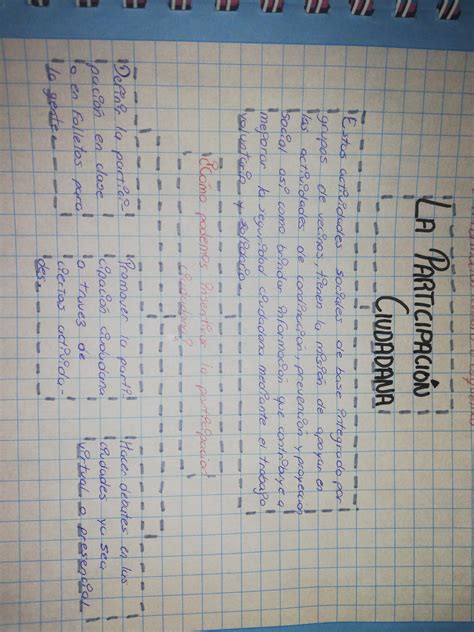 LA PARTICIPACIÓN
CIUDADANA
Estas actividades sociales de base integrada por
grupos de vecinos, tienen la misión de apoyar en
las actividades de coordinación, prevención y proyección
social así como brindar información que contribuye a
mejorar la seguridad ciudadana mediante el trabajo
voluntario y solidario.
¿Cómo podemos incentivar la participación
ciudadana?
Definir la partici-
pación en clase
o en folletos para
la gente
Promover la parti
cipación ciudadana
a traves de
ciertas activida-
des.
Hacer debates en las
ciudades ya sea
virtual o presencial